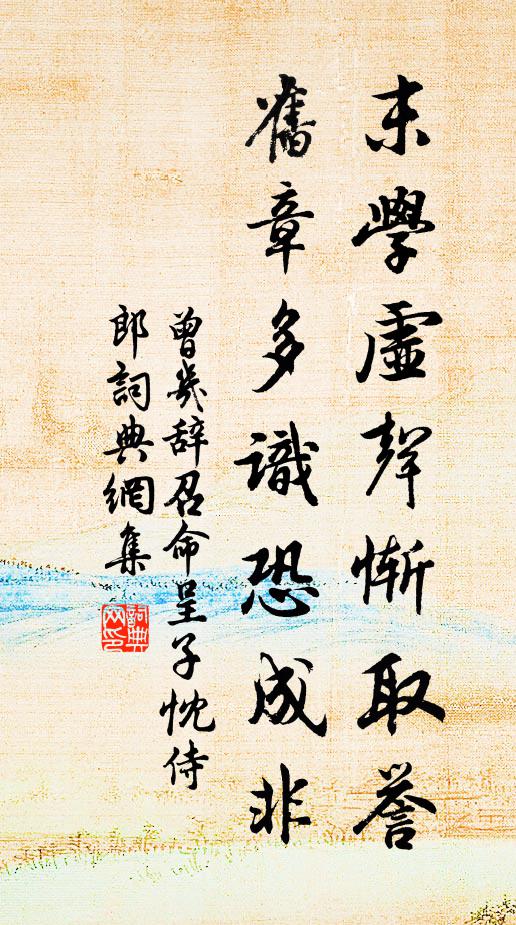 末學虛聲慚取譽
舊章多識恐成非
曾幾辭召命呈子忱侍
郎詞典網集
詞典
网印